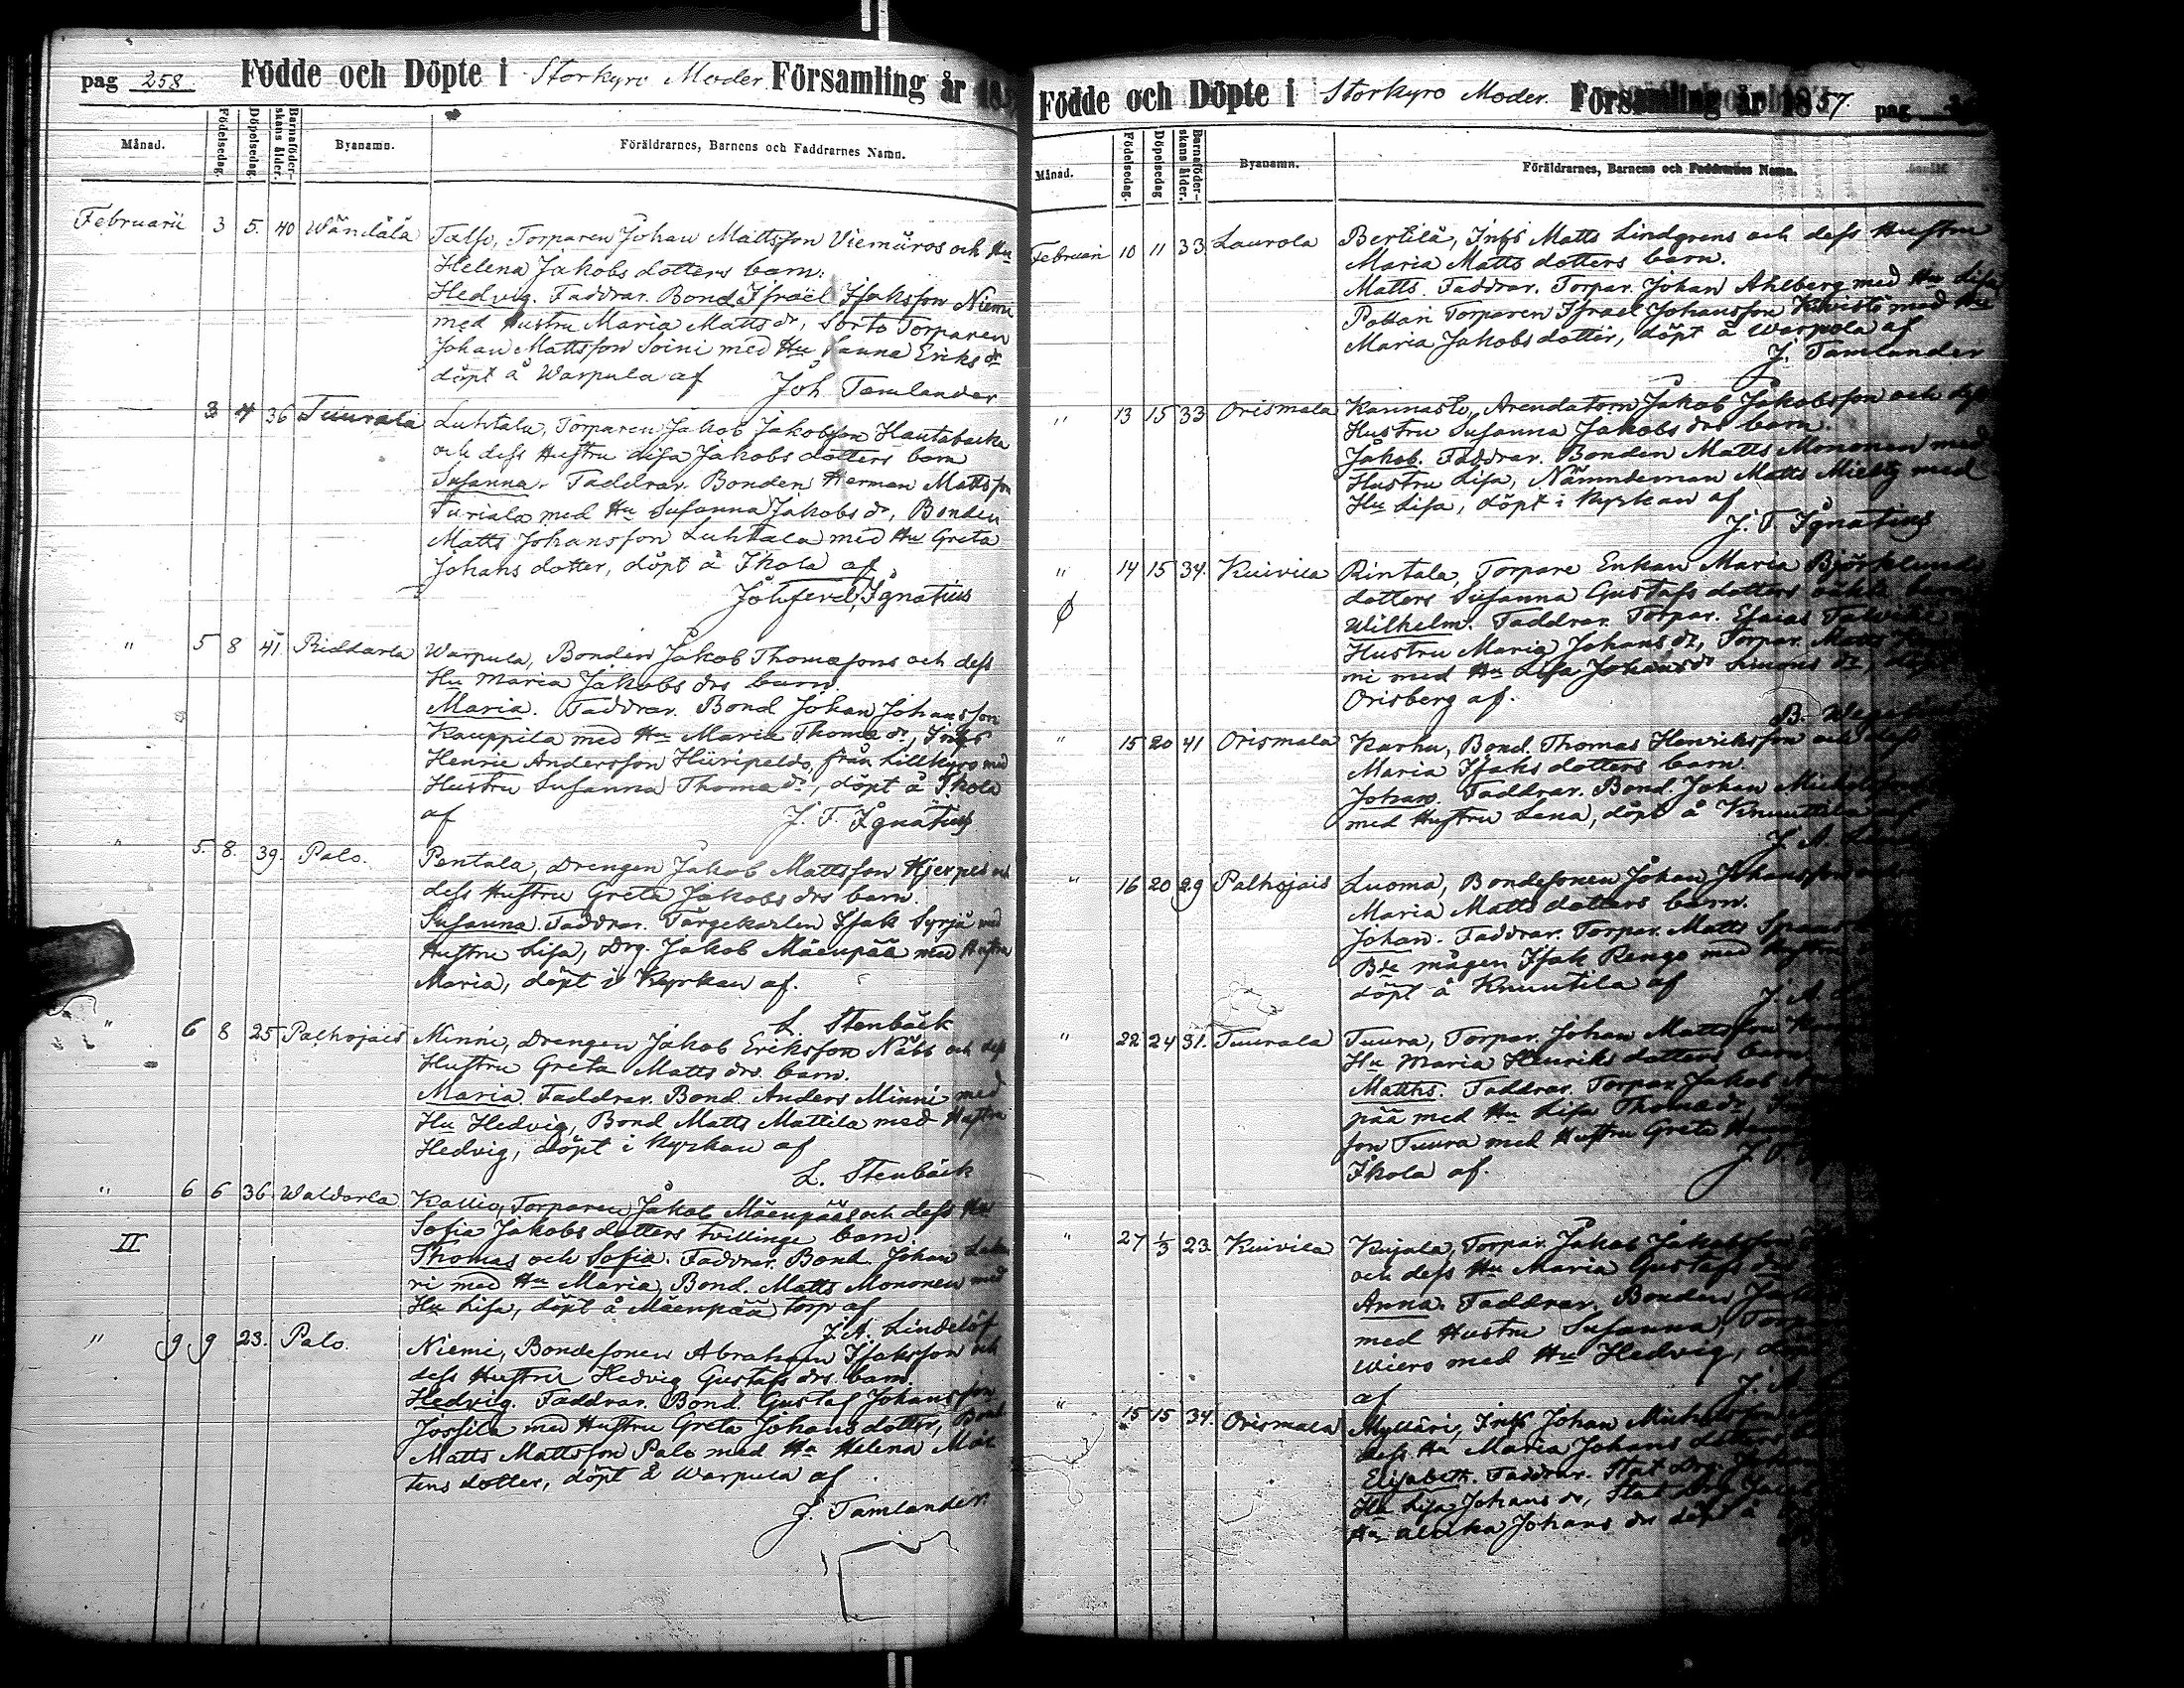 pag 258 Födde och Döpte i Storkyro Moder Församling år 185
Månad. Födelsedag. Döpelsedag. Barnaföderskans ålder. Byanamn. Föräldrarnes, Barnens och Faddrarnes Namn.
Februarii 3 5. 40 Wändälä Talso, Torparen Johan Mattsson Viemäros och Hu
Helena Jakobs dotters barn.
Hedvig. Faddrar. Bond Israël Isaksson Niemi
med Hustru Maria Matts dr, Torparen
Johan Mattsson Soini med Hu Sanna Eriks dr
döpt å Warpula af Joh Tamlander
— 3 4 36 Tuurala Luhtala, Torparen Jakob Jakobsson Hautabacka
och dess Hustru Lisa Jakobs dotters barn
Susanna. Faddrar. Bonden Herman Mattsson
Turiala med Hu Susanna Jakobs dr, Bonden
Matts Johansson Luhtala med Hu Greta
Johans dotter, döpt å Ikola af
Joh. Ferd. Ignatius
" 5 8 41 Riddarla Warpula, Bonden Jakob Thomasons och dess
Hu Maria Jakobs drs barn.
Maria. Faddrar. Bond Johan Johansson
Kauppila med Hu Maria Thomæ dr, Inhs
Henric Andersson Hiiripelto från Lillkyro med
Hustru Susanna Thomæ dr, döpt å Ikola
af J. F. Ignatius
" 5. 8. 39. Palo. Pentala, Drengen Jakob Mattsson Kjerpes och
dess Hustru Greta Jakobs drs barn.
Susanna. Faddrar. Färgekarlen Isak Syrjä med
Hustru Lisa, Drg. Jakob Mäenpää med Hustru
Maria, döpt i Kyrkan af.
L. Stenbäck
" 6 8 25 Palhojais Minni, Drengen Jakob Eriksson Näbb och dess
Hustru Greta Matts drs. barn.
Maria. Faddrar. Bond. Anders Minni med
Hu Hedvig, Bond Matts Mattila med Hustru
Hedvig, döpt i Kyrkan af
L. Stenbäck
" 6 6 36. Waldarla Kallio, Torparen Jakob Mäenpääs och dess Hu
Sofia Jakobs dotters tvillinge barn.
II Thomas och Sofia. Faddrar. Bond. Johan
ri med Hu Maria, Bond. Matts Mononen med
Hu Lisa, döpt å Mäenpää torp af
J. A. Lindelöf
" 9 9 23. Palo. Niemi, Bondesonen Abraham Isaksson och
dess Hustru Hedvig Gustafs drs. barn.
Hedvig. Faddrar. Bond. Gustaf Johansson
Jossila med Hustru Greta Johans dotter, Bond
Matts Mattsson Palo med Hu Helena Mår
tens dotter, döpt å Warpula af
J. Tamlander.
Födde och Döpte i Storkyro Moder. Församling år 1857. pag
Månad. Födelsedag. Döpelsedag Barnaföderskans ålder. Byanamn. Föräldrarnes, Barnens och Faddrarnes Namn.
Februari 10 11 33. Laurola Bertilä, Inhs Matts Lindgrens och dess Hustru
Maria Matts dotters barn.
Matts. Faddrar. Torpar. Johan Ahlberg med Hu Lisa
Pottari Torparen Israel Johansson Kiwistö med Hu
Maria Jakobs dotter, döpt å Warpola af
J. Tamlander
" 13 15 33 Orismala Kannasto, Arendatorn Jakob Jakobsson och dess
Hustru Susanna Jakobs drs barn.
Jakob. Faddrar. Bonden Matts Mononen med
Hustru Lisa, Nämndeman Matts Mielty med
Hu Lisa, döpt i Kyrkan af
J. F. Ignatius
" 14 15 34. Kuivila Rintala, Torpare Enkan Maria Björklunds
dotters Susanna Gustafs dotters oäkta barn
Wilhelm. Faddrar. Torpar. Esaias Talvitie
Hustru Maria Johans dr, Torpar. Matts
ni med Hu Lisa Johans dr Simons dr, döpt
Orisberg af.
B.
" 15 20 41 Orismala Karhu, Bond. Thomas Henriksson och dess
Maria Isaks dotters barn.
Johan. Faddrar. Bond. Johan Michelsson
med Hustru Lena, döpt å Knuuttila af
J. A.
" 16 20 29 Palhojais Luoma, Bondesonen Johan Johansson
Maria Matts dotters barn.
Johan. Faddrar. Torpar. Matts
Bde mågen Isak Rengo med Hustru
döpt å Knuutila af J. A.
" 22 24 31. Tuurala Tuura, Torpar. Johan Mattsson
Hu Maria Henriks dotters barn.
Matths. Faddrar. Torpar. Jakob
pää med Hu Lisa Thomæ dr,
son Tuura med Hustru Greta
Ikola af. J. F.
" 27 1/3 23. Kuivila Kujala, Torpar. Jakob Jakobsson
och dess Hu Maria Gustafs drs
Anna. Faddrar. Bonden
med Hustru Susanna, Torp
wiers med Hu Hedvig, döpt
af J. A.
" 15 15 34. Orismala Mylläri, Inhs Johan Michelsson
dess Hu Maria Johans dotters
Elisabeth. Faddrar. Stat Drg. Johan
Hu Lisa Johans dr, Stat Drg
Hu Ulrika Johans dr döpt å